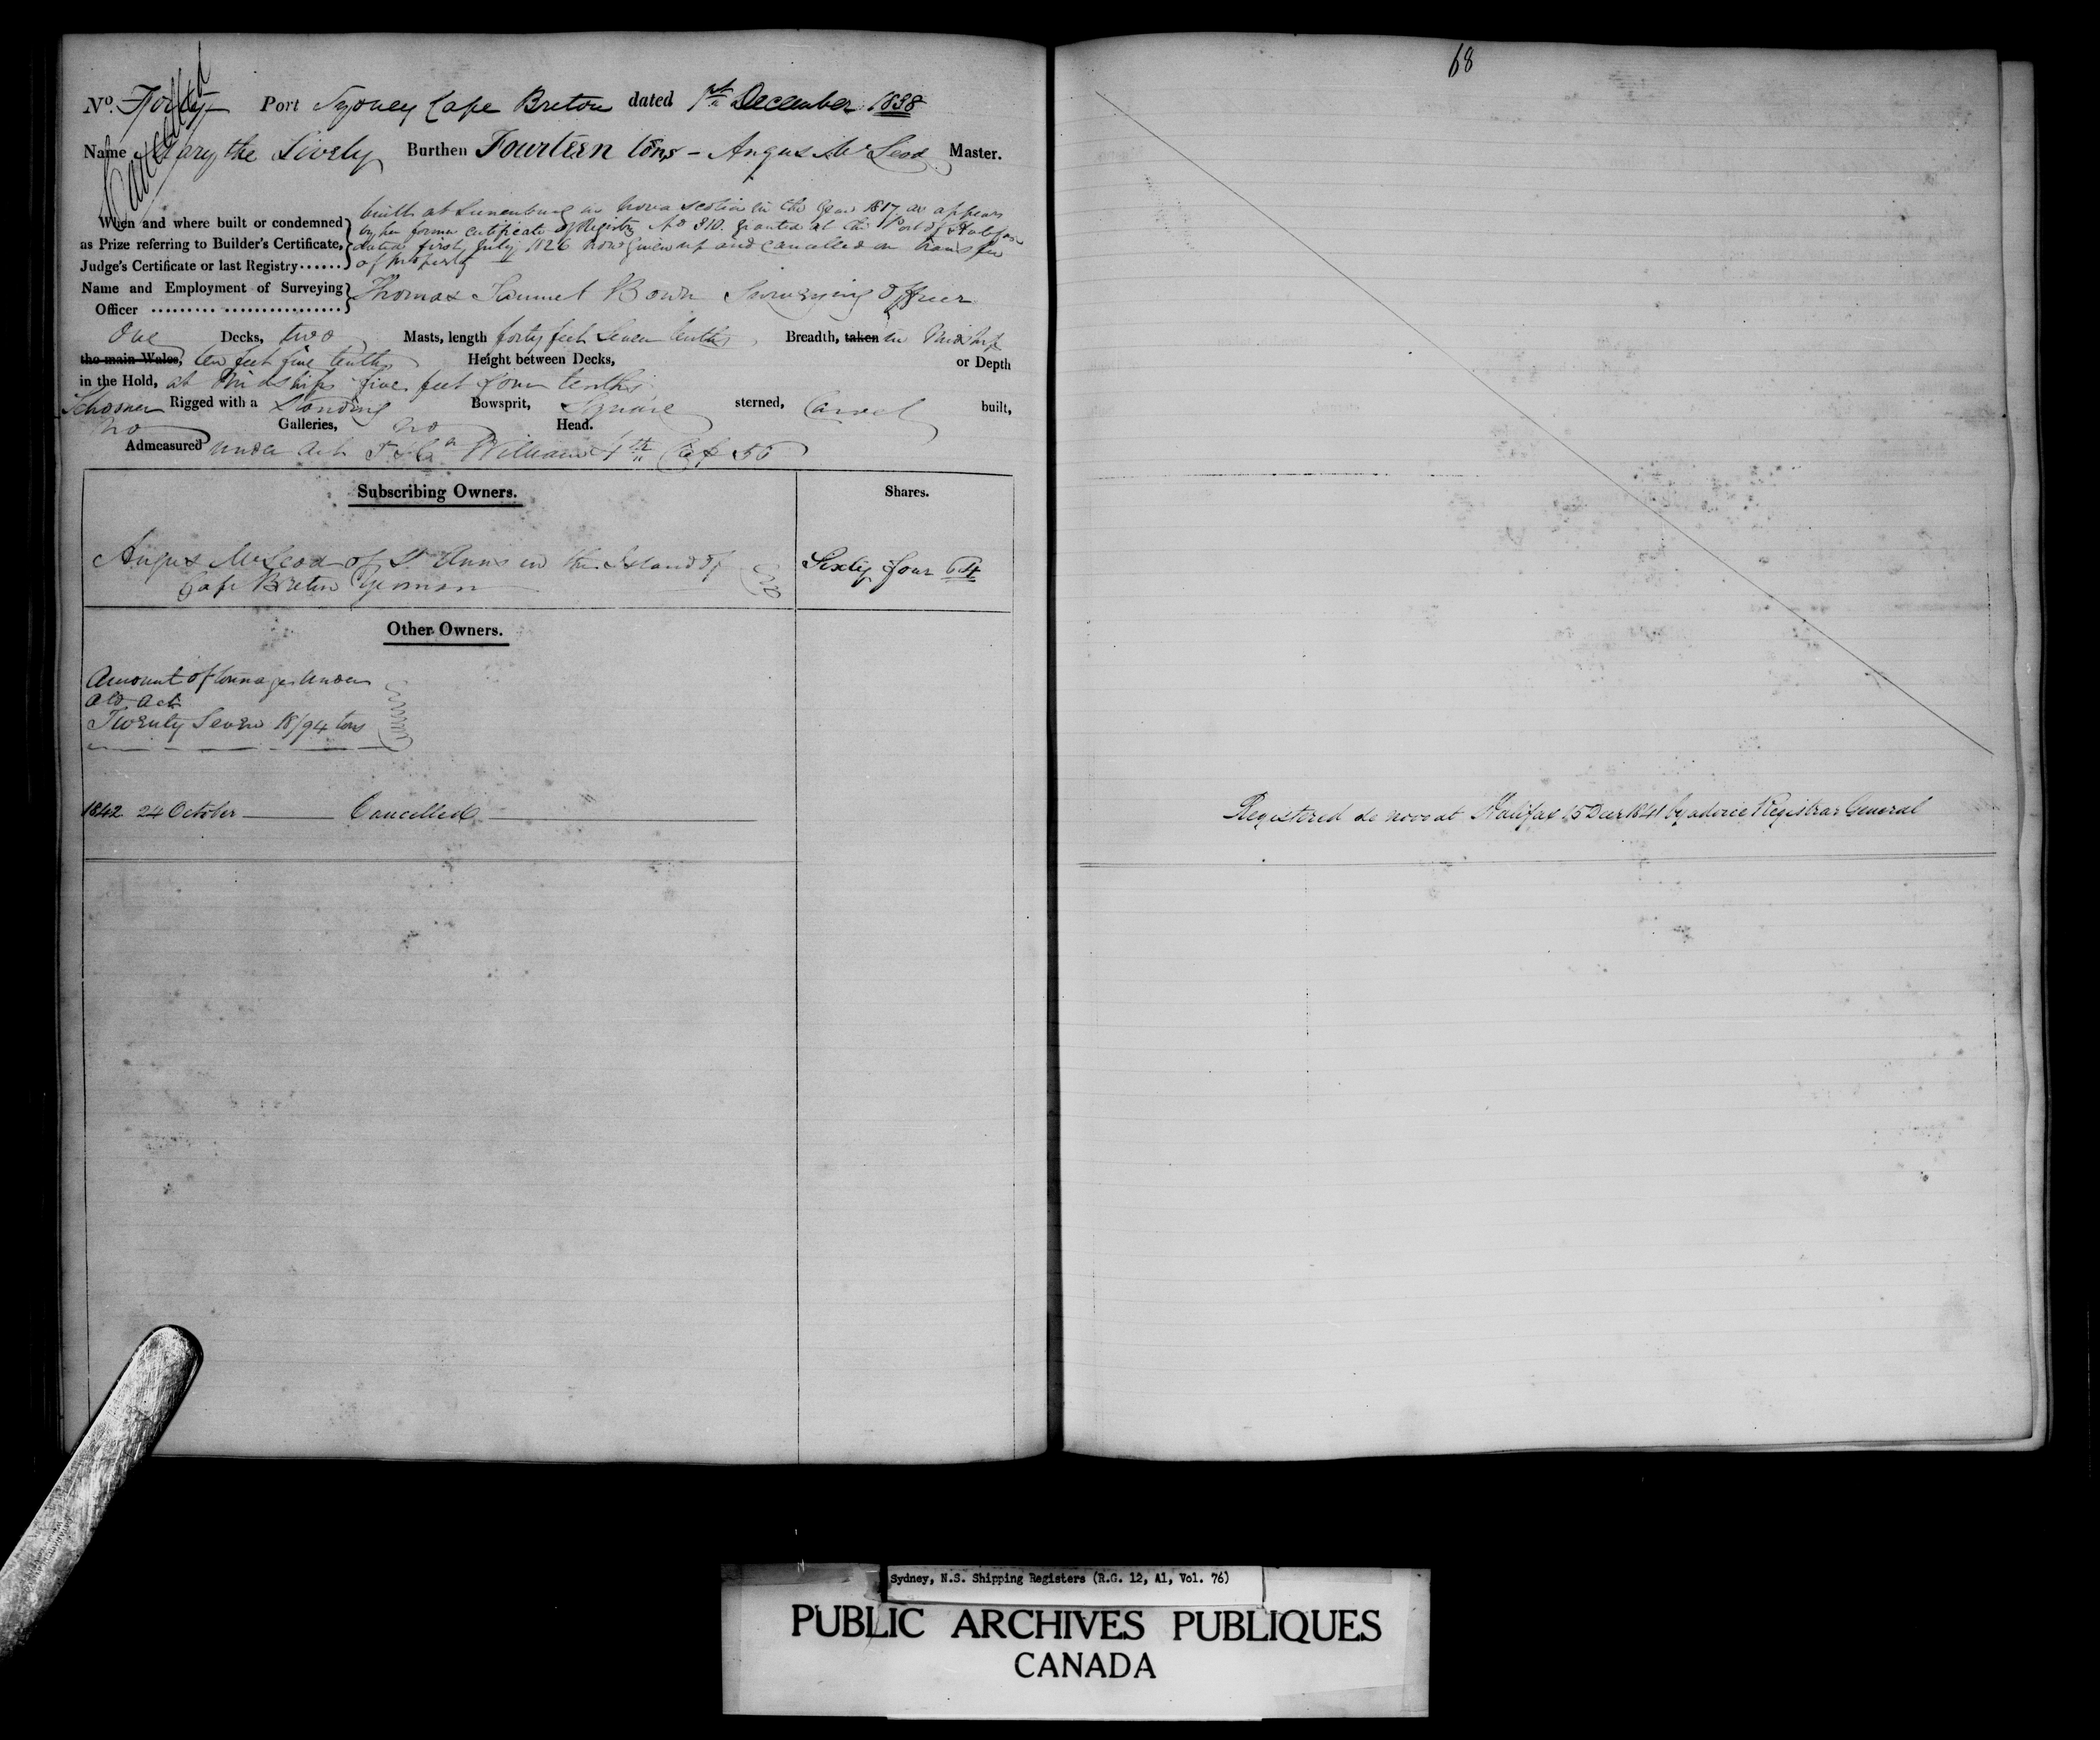 68
Cancelled
No. Forty Port Sydney Cape Breton dated 1st December 1838
Name Mary the Lively Burthen Fourteen tons - Angus McLeod Master.
built at Lunenburg in Nova Scotia in the year 1817 as appears
When and where built or condemned by her former certificate of Registry No 810. granted at the Port of Halifax
as Prize referring to Builder's Certificate, dated first July 1826 now given up and cancelled on transfer
Judge's Certificate or last Registry...... of property
Name and Employment of Surveying Thomas Samuel Bown Surveying Officer
Officer
One Decks, two Masts, length forty feet seven tenths, Breadth, taken in Midship
the main Wales, ten feet five tenths Height between Decks, or Depth
in the Hold, at Midships five feet four tenths
Schooner Rigged with a Standing Bowsprit, Square sterned, Carvel built,
no Galleries, no Head.
Admeasured under Act 5 & 6 William 4th Cap 56
Subscribing Owners. Shares.
Angus McLeod of St Anns in the Island of
Cape Breton Yeoman
Sixty four 64
Other Owners.
Amount of tonnage under
old Act
Twenty Seven 18/94 tons
1842 24 October Cancelled
Registered de novo at Halifax 15 Decr 1841 by advice Registrar General
Sydney, N.S. Shipping Registers (R.G. 12, A1, Vol. 76)
PUBLIC ARCHIVES PUBLIQUES
CANADA